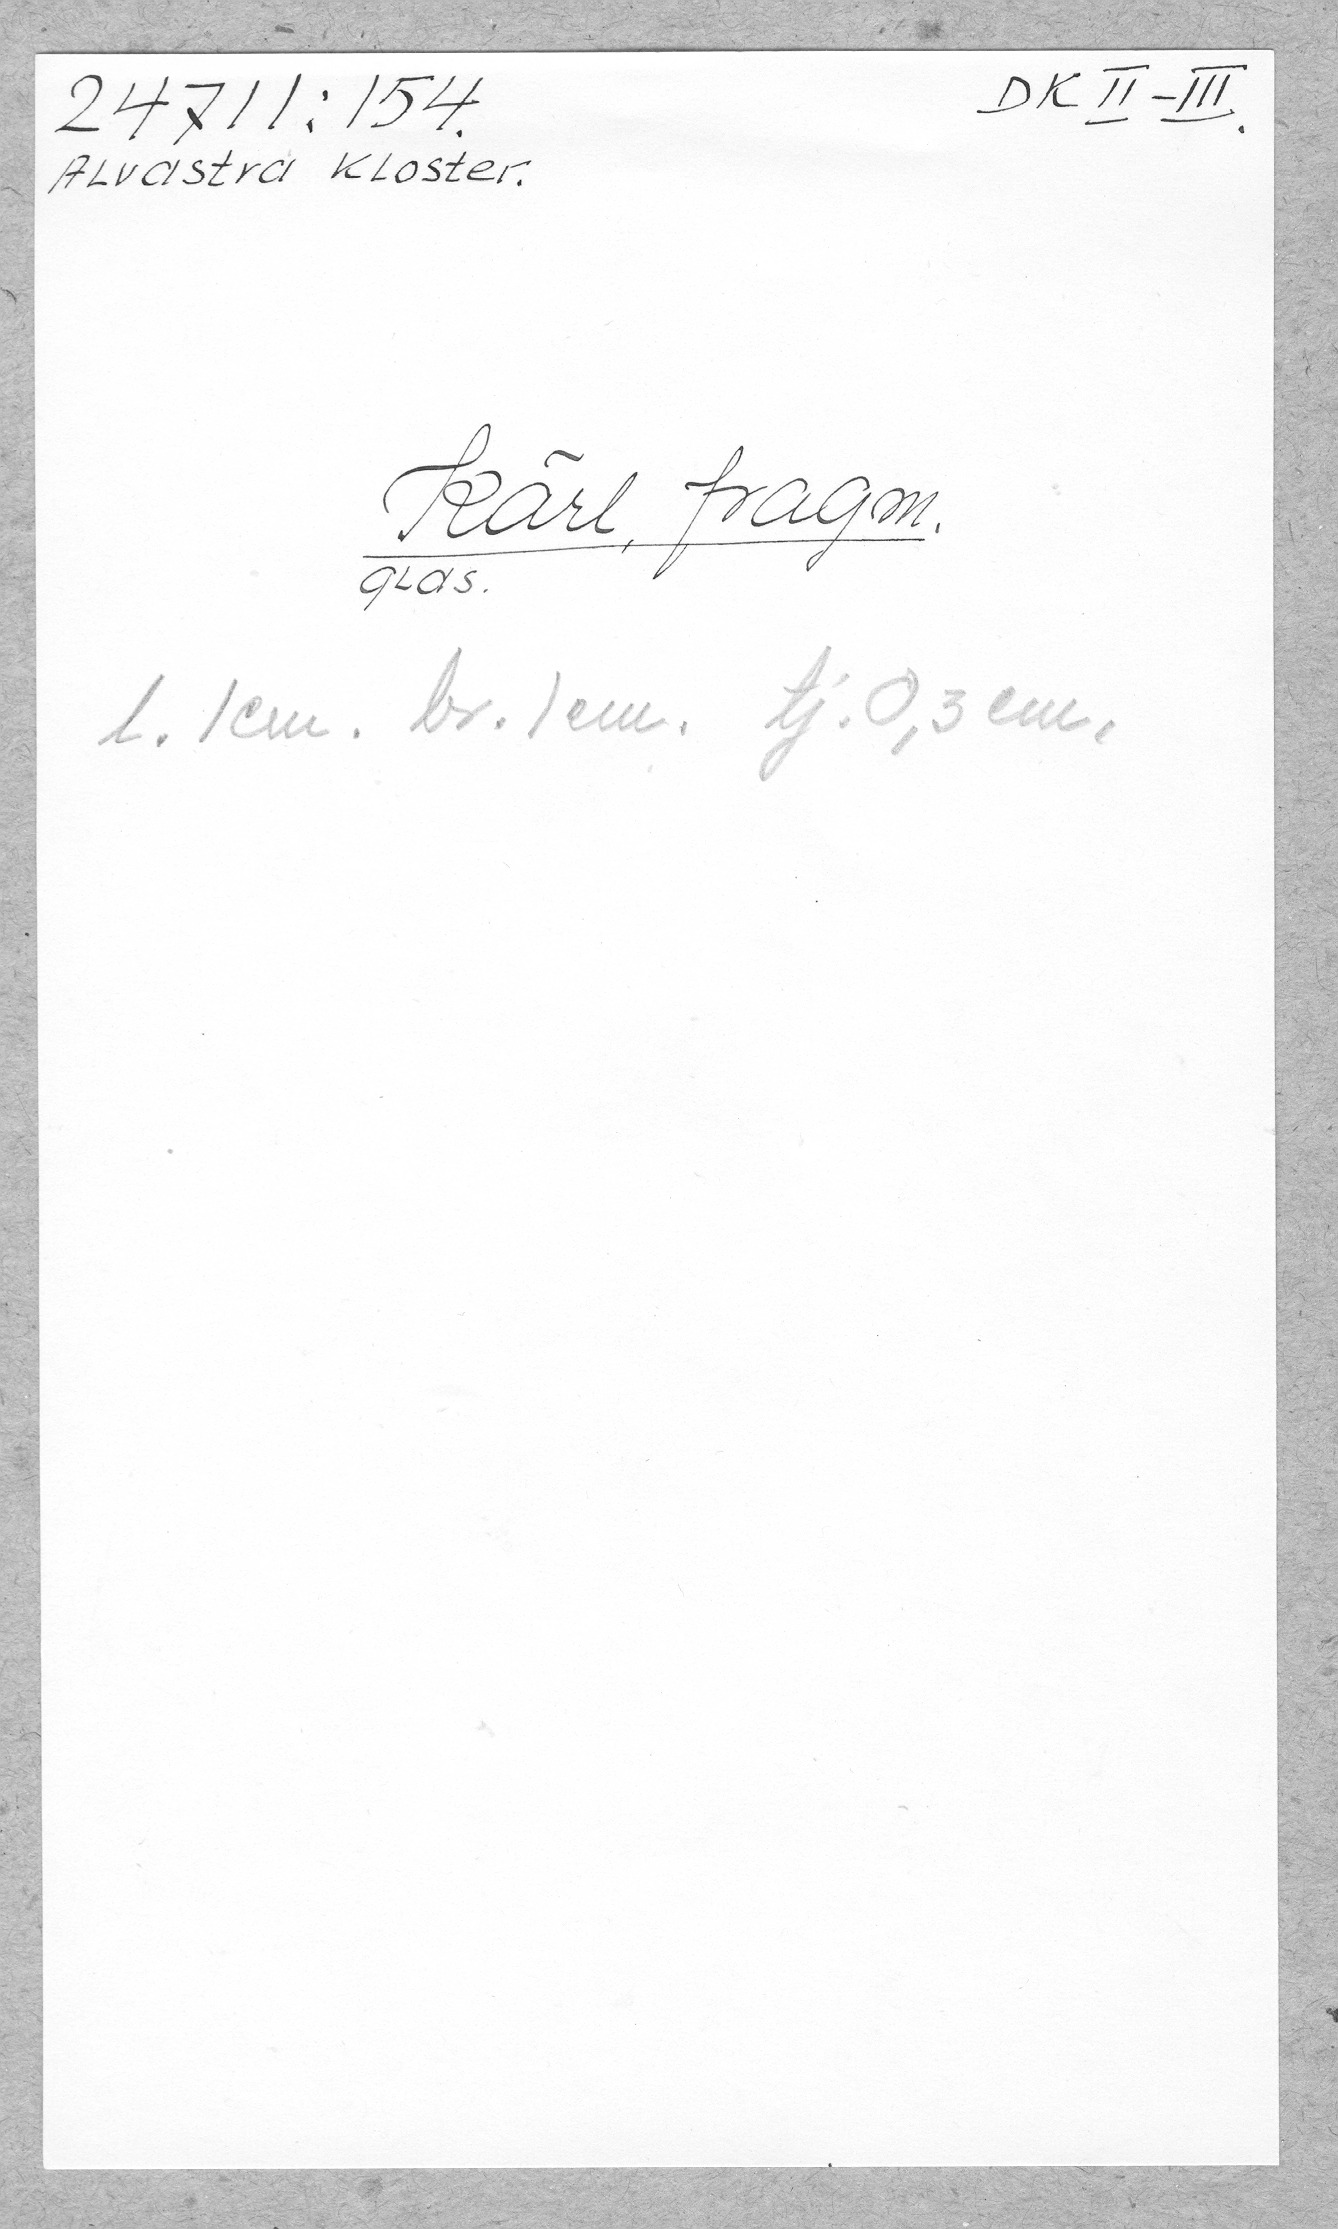 24711:154.
DK II-III.
Alvastra kloster.
Kärl, fragm.
glas.
l. 1cm. br. 1cm. tj. 0,3 cm.